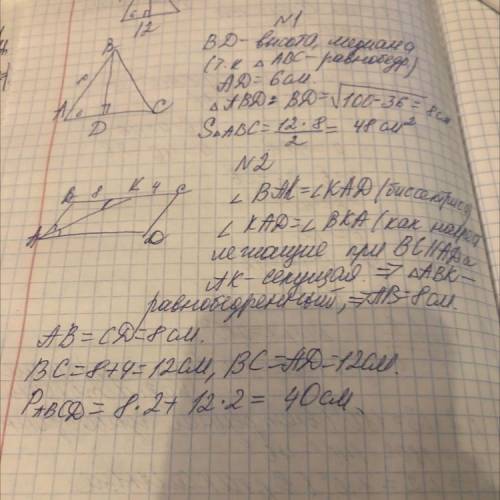 12
N1
BD - высота, медиана
(т.к △ABC - равнобедр)
AD = 6см.
△ABD: BD = √100-36 = 8см
S△ABC = 12·8/2 = 48 см²
B
A
D
C
N2
B 8 K 4 C
A
D
∠BAK = ∠KAD (биссектриса
∠KAD = ∠BKA (как накрест
лежащие при BC||AD а
AK - секущая ⇒ △ABK -
равнобедренный, ⇒ AB = 8см.
AB = CD = 8 см.
BC = 8+4 = 12 см, BC = AD = 12см.
PABCD = 8·2 + 12·2 = 40 см.